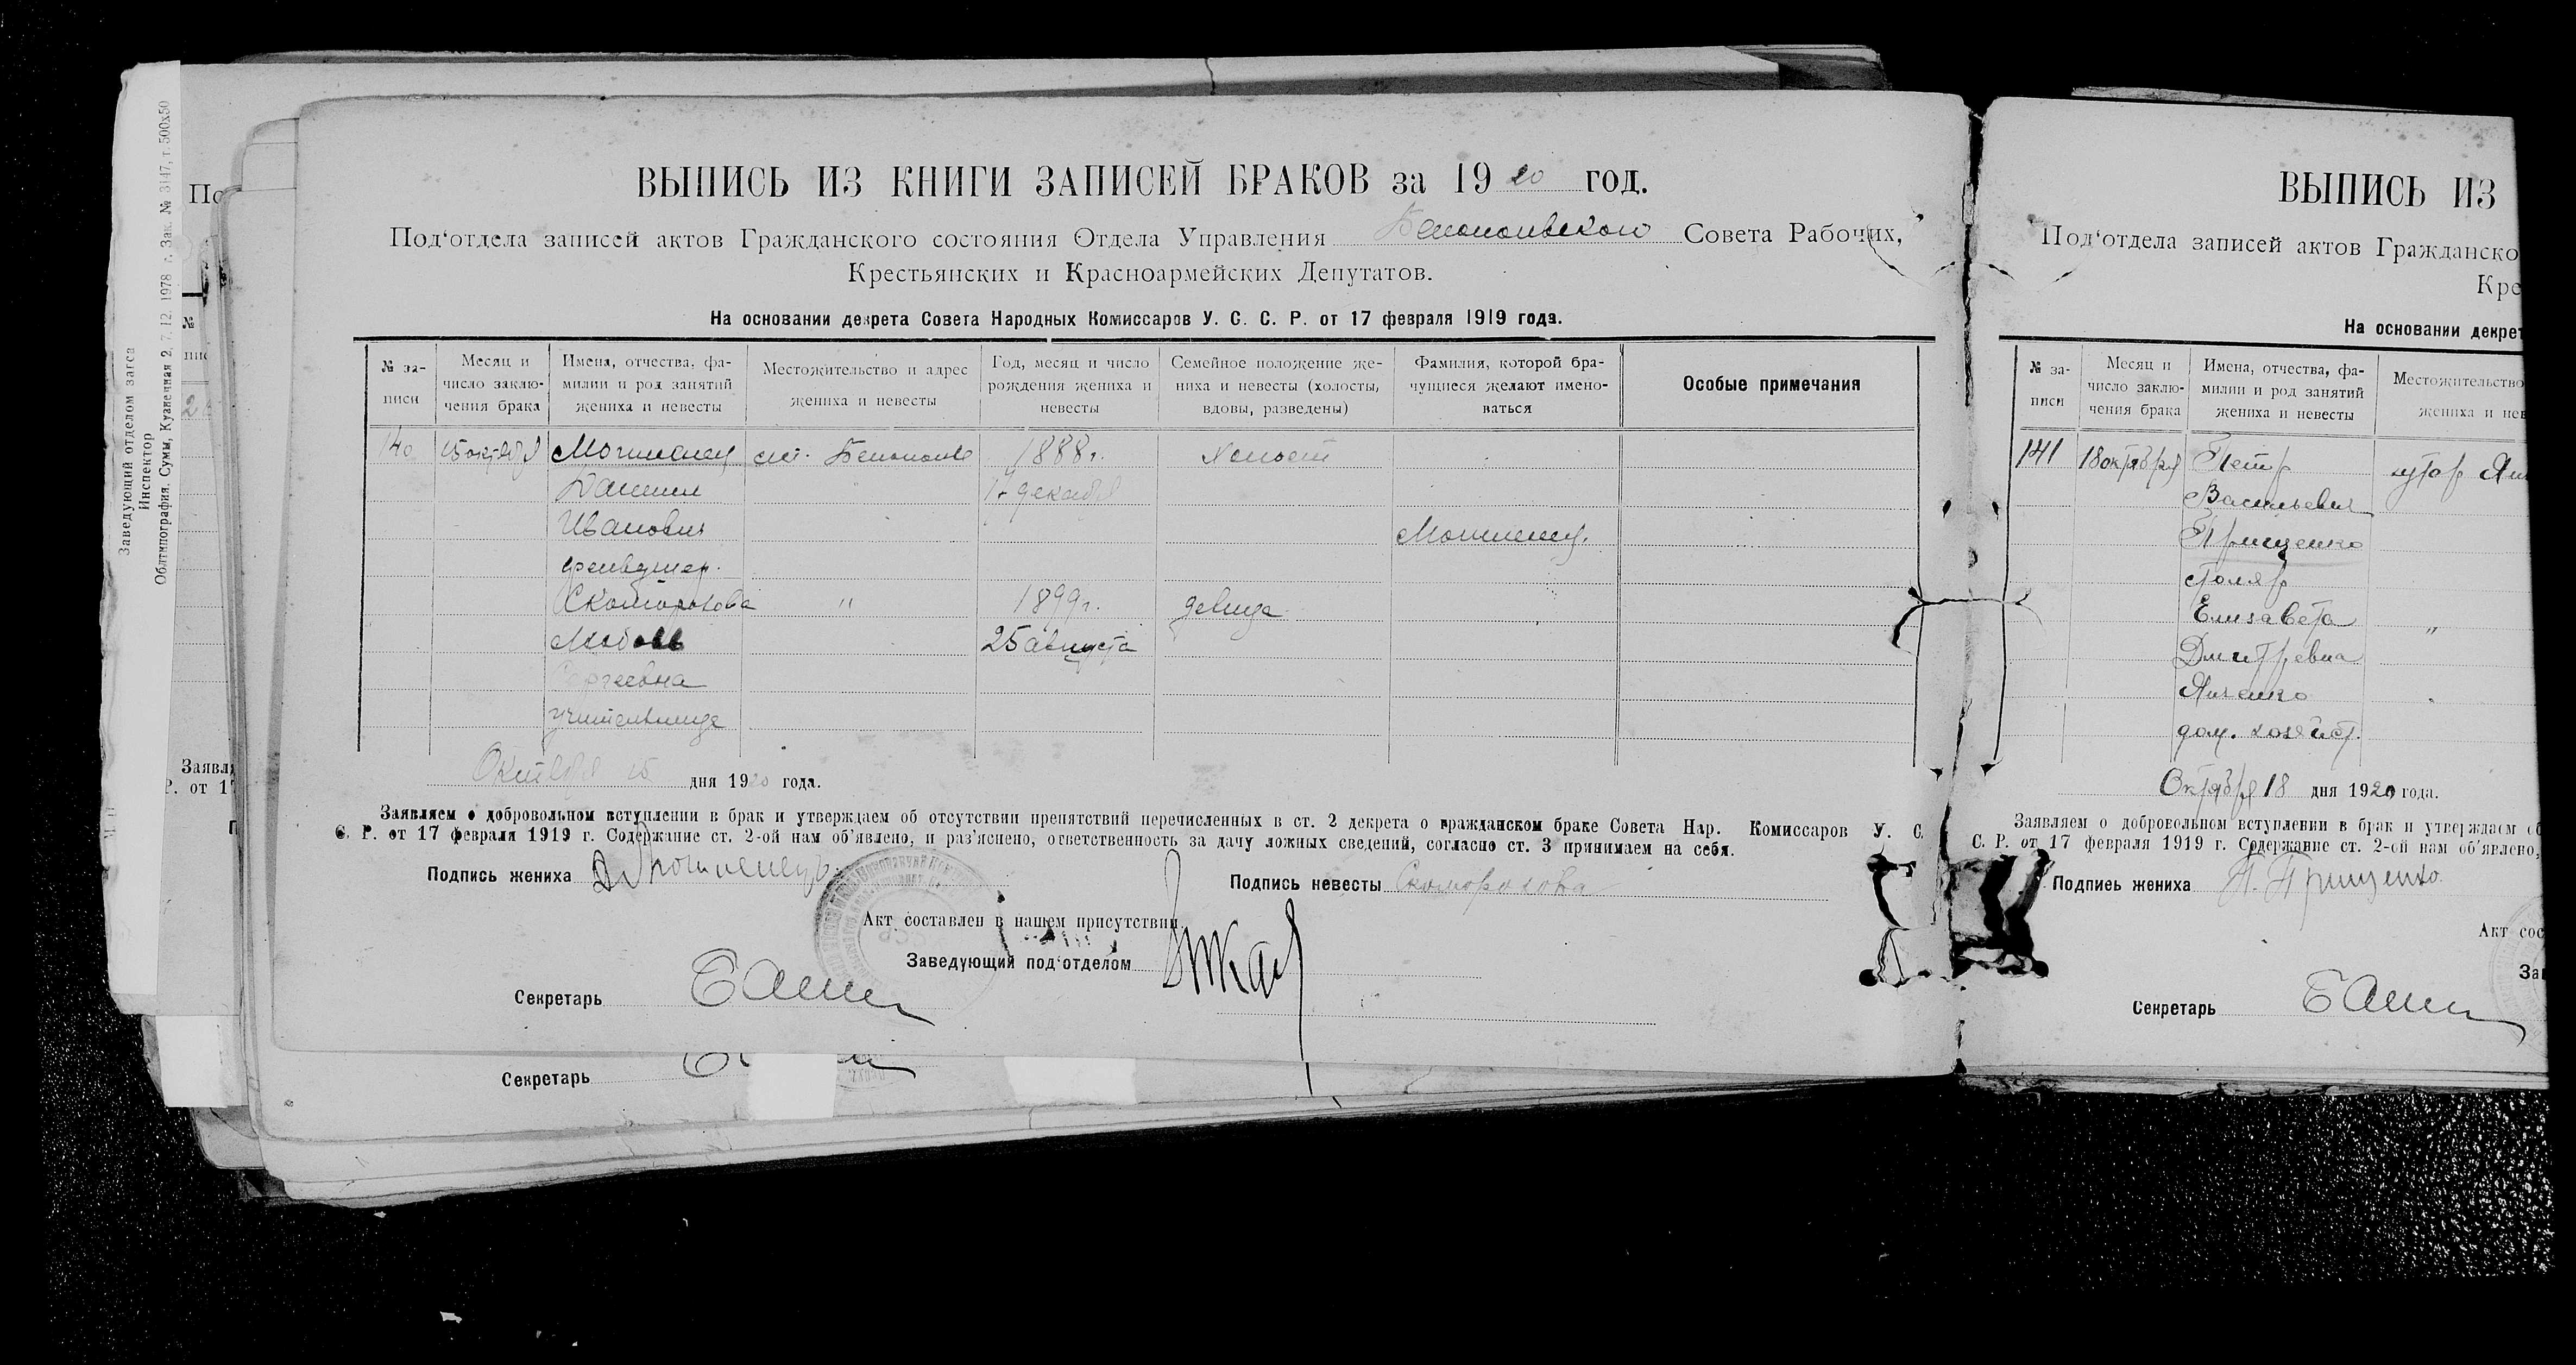 ВЫПИСЬ ИЗ КНИГИ ЗАПИСЕЙ БРАКОВ за 1920 год.
Под‘отдела записей актов Гражданского состояния Отдела Управления Белопольского Совета Рабочих,
Крестьянских и Красноармейских Депутатов.
На основании декрета Совета Народных Комиссаров У. С. С. Р. от 17 февраля 1919 года.
№ за-
писи
Месяц и
число заклю-
чения брака
Имена, отчества, фа-
милии и род занятий
жениха и невесты
Местожительство и адрес
жениха и невесты
Год, месяц и число
рождения жениха и
невесты
Семейное положение же-
ниха и невесты (холосты,
вдовы, разведены)
Фамилия, которой бра-
чущиеся желают имено-
ваться
Особые примечания
140 15 октября Могиленец ст. Белополье 1888г. Холост
Даниил декабря
Иванович
Могиленец.
фельдшер.
Скоморохова " 1899г. девица
Любовь 25 августа
Сергеевна
учительница
Октября 15 дня 1920 года.
Заявляем о добровольном вступлении в брак и утверждаем об отсутствии препятствий перечисленных в ст. 2 декрета о гражданском браке Совета Нар. Комиссаров У. С.
С. Р. от 17 февраля 1919 г. Содержание ст. 2-ой нам об‘явлено, и раз‘яснено, ответственность за дачу ложных сведений, согласно ст. 3 принимаем на себя.
Подпись жениха Д Могиленец
Подпись невесты Скоморохова
Акт составлен в нашем присутствии
Заведующий под‘отделом
Секретарь
Секретарь
ВЫПИСЬ ИЗ
Под‘отдела записей актов Гражданско
Кре
На основании декрет
№ за-
писи
Месяц и
число заклю-
чения брака
Имена, отчества, фа-
милии и род занятий
жениха и невесты
Местожительство
жениха и нев
141 18 октября Петр хутор Ян
Васильевич
Прищенко
столяр
Елизавета "
Дмитревна
Янченко
дом. хозяйст.
Октября 18 дня 1920 года.
Заявляем о добровольном вступлении в брак и утверждаем об
С. Р. от 17 февраля 1919 г. Содержание ст. 2-ой нам об‘явлено,
Подпись жениха П. Прищенко
Акт сос
За
Секретарь
Заведующий отделом загса
Инспектор
Облтипография. Сумы, Кузнечная 2. 7. 12. 1978 г. Зак. № 3147, т. 500х50
По
№
пис
Заявля
Р. от 17